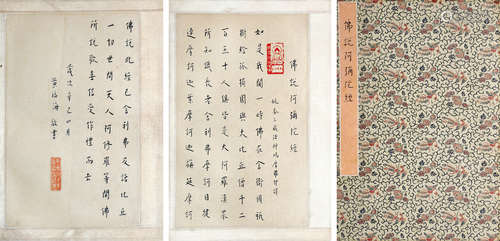 佛說阿彌陀經
佛說阿彌陀經
姚秦三藏法師鳩摩羅什譯
如是我聞一時佛在舍衛國祇
樹給孤獨園與大比丘僧千二
百五十人俱皆是大阿羅漢眾
所知識長老舍利弗摩訶目犍
連摩訶迦葉摩訶迦旃延摩訶
佛說此經已舍利弗及諸比丘
一切世間天人阿修羅等聞佛
所說歡喜信受作禮而去
歲次辛巳四月
黃福海敬書